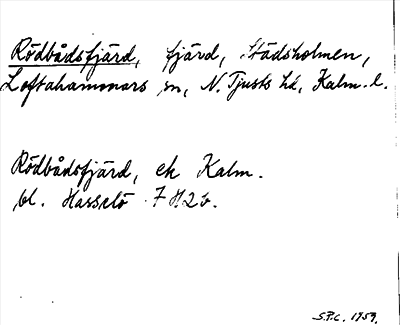 Rödbådsfjärd, fjärd, Städsholmen,
Loftahammars sn, N. Tjusts hd, Kalm. l.
Rödbådsfjärd, ek Kalm.
bl. Hasselö 7 H2b.
S.P.C. 1959.